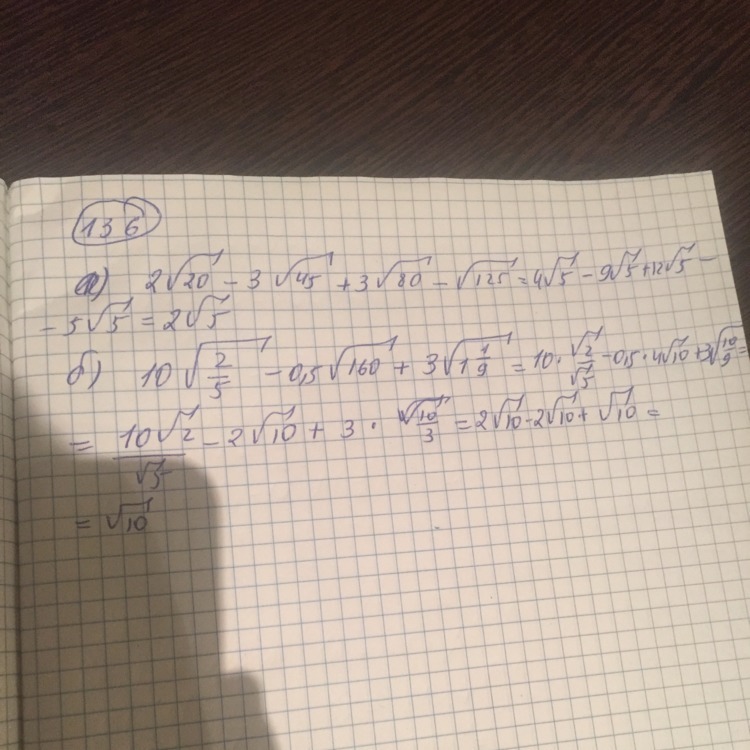 136
а) 2√20 - 3√45 + 3√80 - √125 = 4√5 - 9√5 + 12√5 -
- 5√5 = 2√5
б) 10√(2/5) - 0,5√160 + 3√(1 1/9) = 10 · √2/√5 - 0,5 · 4√10 + 3√(10/9) =
= 10√2/√5 - 2√10 + 3 · √10/3 = 2√10 - 2√10 + √10 =
= √10